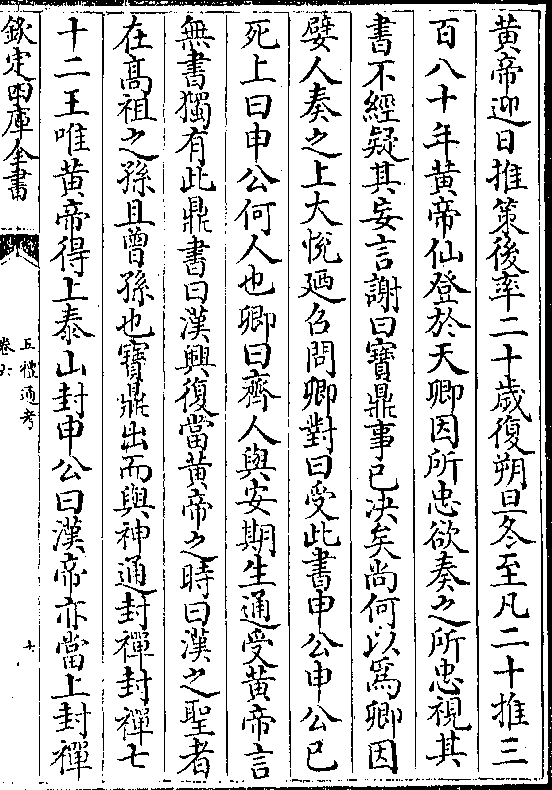 黄帝迎日推策後率二十歳復朔旦冬至凡二十推三
百八十年黄帝仙登於天卿因所忠欲奏之所忠視其
書不經疑其妄言謝曰寶鼎事已决矣尚何以爲卿因
嬖人奏之上大恱廼召問卿對曰受此書申公申公已
死上曰申公何人也卿曰齊人與安期生通受黄帝言
無書獨有此鼎書曰漢興復當黄帝之時曰漢之聖者
在髙祖之孫且曾孫也寳鼎出而與神通封禪封禪七
十二王唯黄帝得上泰山封申公曰漢帝亦當上封禪
欽定四庫全書
五禮通考